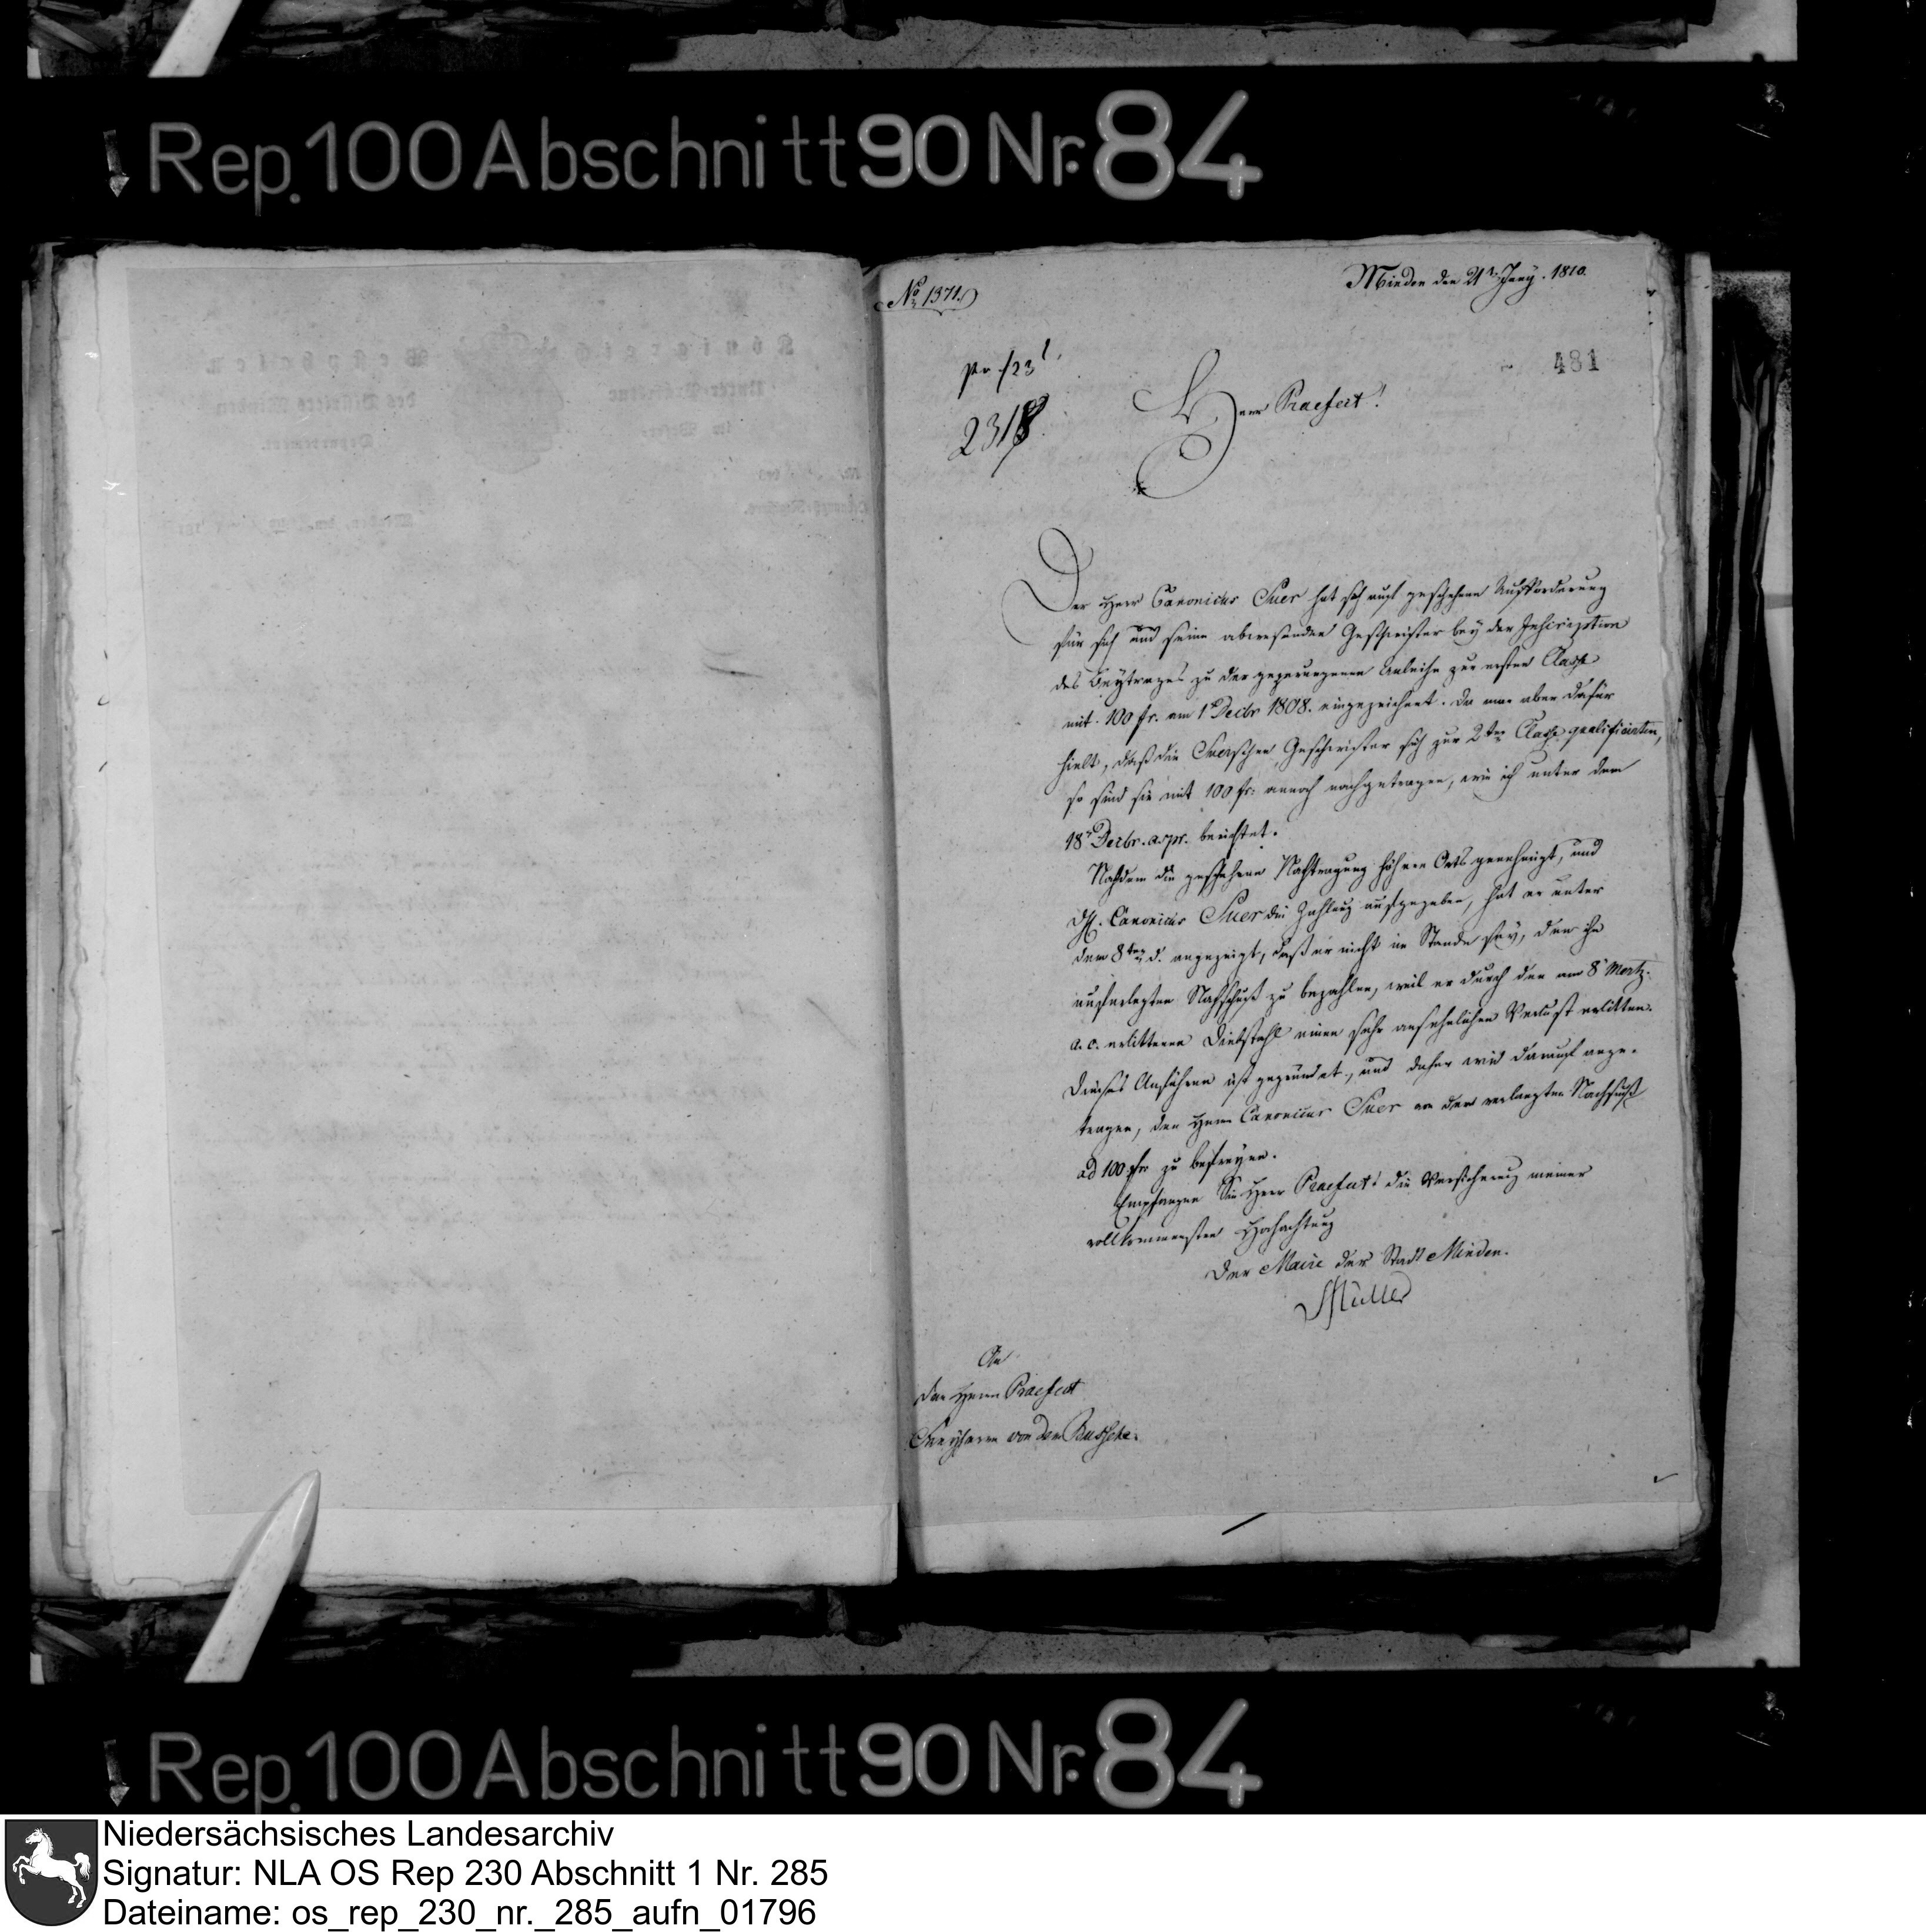 Rep. 100 Abschnitt 90 Nr. 84
No 1371.
Minden den 21t Juny. 1810.
481
pr /23
2318
Herr Praefect!
Der Herr Canonicus Suer hat sich auf geschehene Aufforderung
für sich und seine abwesenden Geschwister bey der Inscription
des Beytrages zu der gezwungenen Anleihe zur ersten Classe
mit 100 fr. am 1t Decbr 1808. eingezeichnet. Da man aber dafür
hielt, daß die Suerschen Geschwister sich zur 2ten Classe qualificirten,
so sind sie mit 100 fr: annoch nachgetragen, wie ich unter dem
18t Decbr. a. pr. berichtet.
Nachdem die geschehene Nachtragung höhern Orts genehmigt, und
H. Canonicus Suer die Zahlung aufgegeben, hat er unter
dem 8ten d. angezeigt, daß er nicht im Stande sey, den ihm
auferlegten Nachschuß zu bezahlen, weil er durch den am 8t Mertz
a. c. erlittenen Diebstahl einen sehr ansehnlichen Verlust erlitten.
Dieses Anführen ist gegründet, und daher wird darauf ange-
tragen, den Herrn Canonicus Suer von dem verlangten Nachschuß
ad 100 fr zu befreyen.
Empfangen Sie Herr Praefect! die Versicherung meiner
vollkommensten Hochachtung
Der Maire der Stadt Minden.
Müller
An
den Herrn Praefect
Freyherrn von dem Bussche.
Rep. 100 Abschnitt 90 Nr. 84
Niedersächsisches Landesarchiv
Signatur: NLA OS Rep 230 Abschnitt 1 Nr. 285
Dateiname: os_rep_230_nr._285_aufn_01796